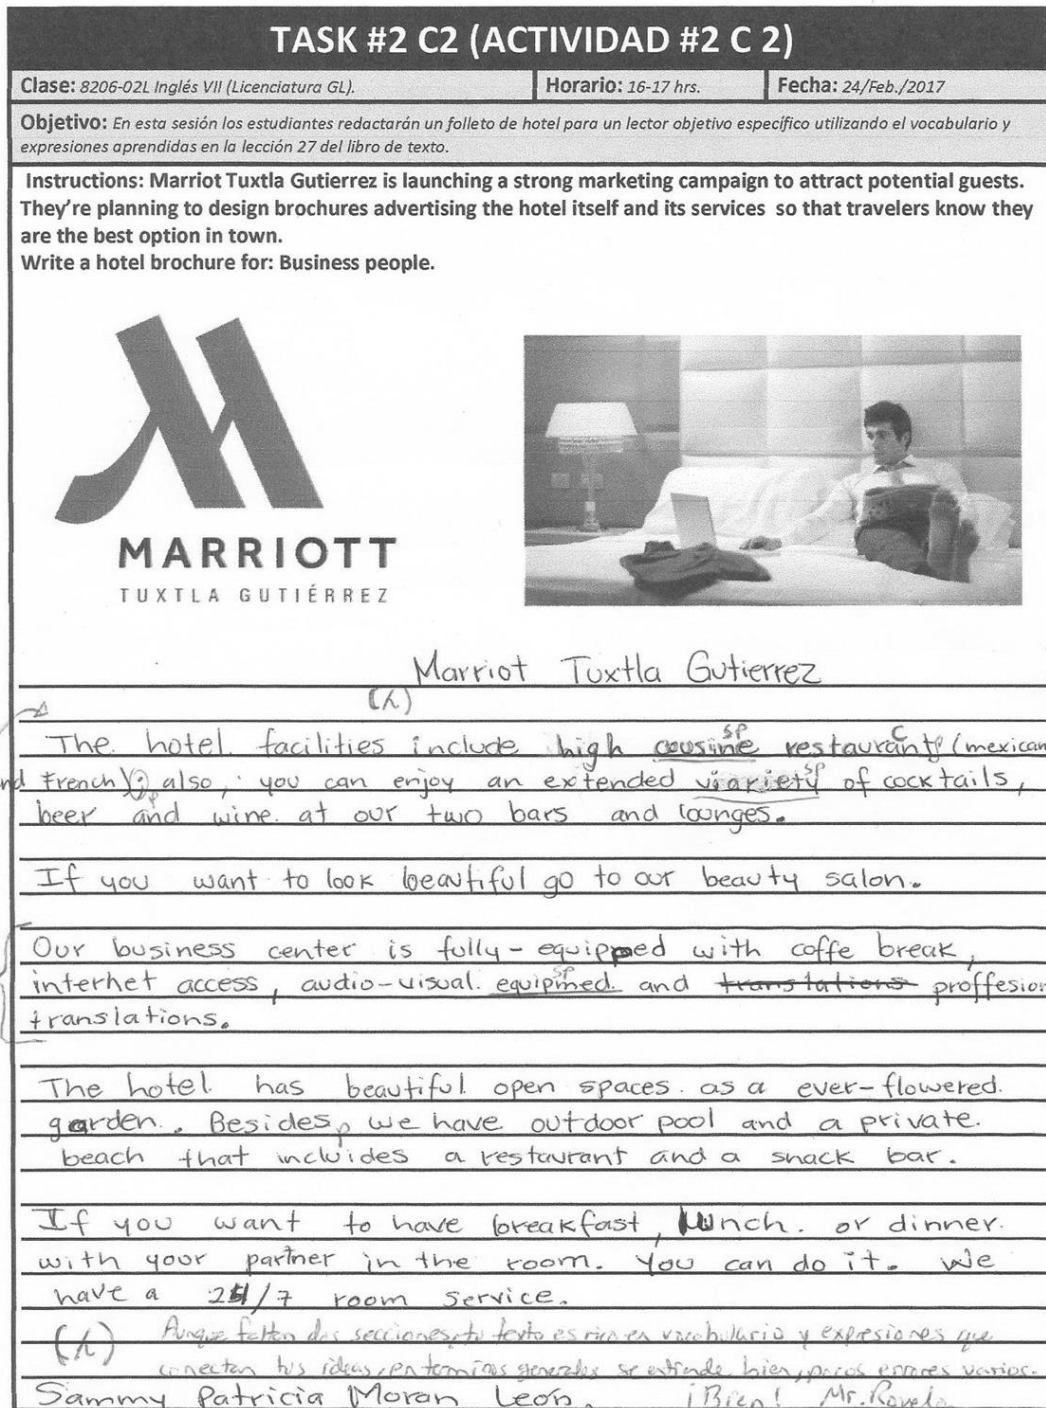 TASK #2 C2 (ACTIVIDAD #2 C 2)
Clase: 8206-02L Inglés VII (Licenciatura GL). Horario: 16-17 hrs. Fecha: 24/Feb./2017
Objetivo: En esta sesión los estudiantes redactarán un folleto de hotel para un lector objetivo específico utilizando el vocabulario y
expresiones aprendidas en la lección 27 del libro de texto.
Instructions: Marriot Tuxtla Gutierrez is launching a strong marketing campaign to attract potential guests.
They're planning to design brochures advertising the hotel itself and its services so that travelers know they
are the best option in town.
Write a hotel brochure for: Business people.
MARRIOTT
TUXTLA GUTIÉRREZ
Marriot Tuxtla Gutierrez
SP C
The hotel facilities include high cousine restaurant (mexican
and French); also, you can enjoy an extended viariety SP of cocktails,
beer and wine at our two bars and lounges.
If you want to look beautiful go to our beauty salon.
Our business center is fully-equipped with coffe break,
internet access, audio-visual equipmed SP and translations proffesion
translations.
The hotel has beautiful open spaces as a ever-flowered
garden. Besides, we have outdoor pool and a private
beach that incluides a restaurant and a snack bar.
If you want to have breakfast, lunch or dinner
with your partner in the room. You can do it. We
have a 24/7 room service.
Aunque faltan dos secciones, tu texto es rico en vocabulario y expresiones que
conectan tus ideas, en terminos generales se entiende bien, pocos errores varios.
Sammy Patricia Moran León. ¡Bien! Mr. Ravelo